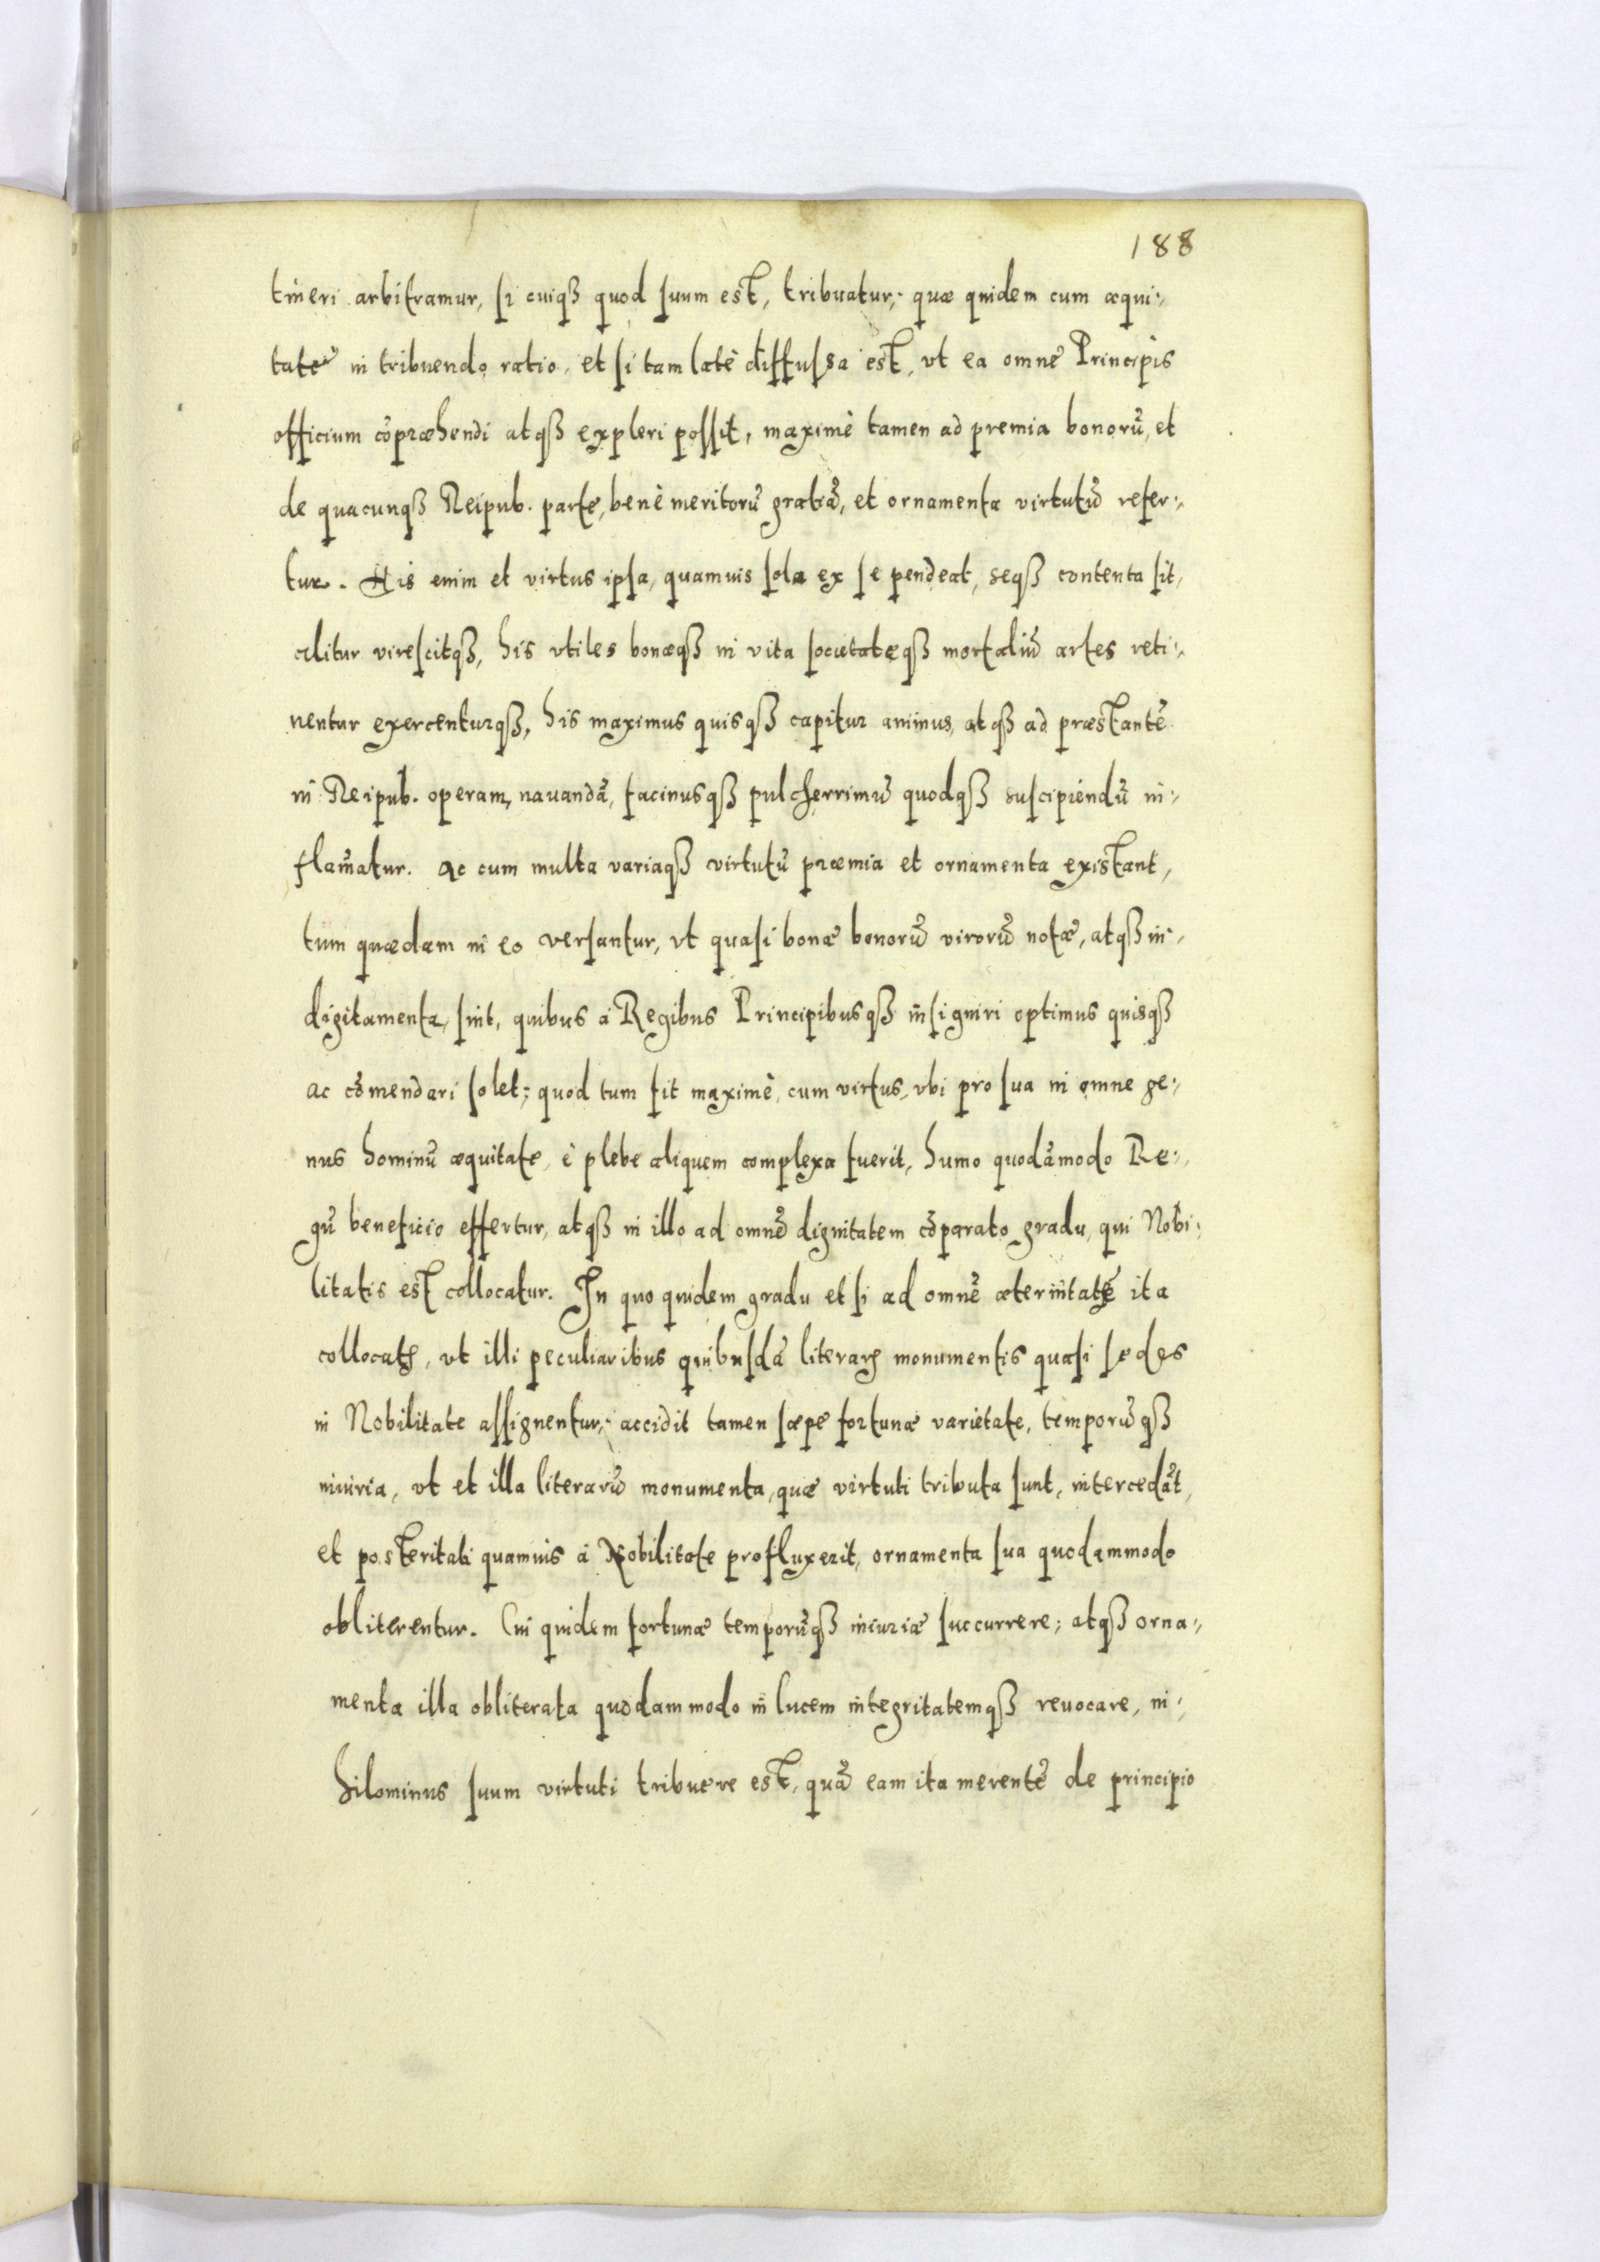 188
tineri arbitramur, si cuiqꝫ quod suum est, tribuatur; quæ quidem cum æqui-
tate in tribuendo ratio, et si tam latè diffussa est, vt ea omnẽ Principis
officium cõpræhendi atqꝫ expleri possit, maximè tamen ad premia bonorũ, et
de quacunqꝫ Reipub. parte, benè meritorũ gratiã, et ornamenta virtutũ refer-
tur. His enim et virtus ipsa, quamuis sola ex se pendeat, seqꝫ contenta sit,
alitur virescitqꝫ, his vtiles bonæqꝫ in vita societateqꝫ mortaliũ artes reti-
nentur exercenturqꝫ, his maximus quisqꝫ capitur animus, atqꝫ ad præstantẽ
in Reipub. operam, nauandã, facinusqꝫ pulcherrimũ quodqꝫ suscipiendũ in-
flam̃atur. Ac cum multa variaqꝫ virtutũ præmia et ornamenta existant,
tum quædam in eo versantur, vt quasi bonæ bonorũ virorũ notæ, atqꝫ in-
digitamenta, sint, quibus à Regibus Principibusqꝫ insigniri optimus quisqꝫ
ac cõmendari solet; quod tum fit maximè, cum virtus, vbi pro sua in omne ge-
nus hominũ æquitate, è plebe aliquem complexa fuerit, humo quodãmodo Re-
gũ beneficio effertur, atqꝫ in illo ad omnẽ dignitatem cõparato gradu, qui Nobi-
litatis est collocatur. In quo quidem gradu et si ad omnẽ æternitatẽ ita
collocatꝭ, vt illi peculiaribus quibusdã literarꝭ monumentis quasi sedes
in Nobilitate assignentur; accidit tamen sæpe fortunæ varietate, temporũqꝫ
iniuria, vt et illa literarũ monumenta, quæ virtuti tributa sunt, intercedãt,
et posteritati quamuis à Nobilitate profluxerit, ornamenta sua quodammodo
obliterentur. Cui quidem fortunæ temporũqꝫ iniuriæ succurrere; atqꝫ orna-
menta illa obliterata quodammodo in lucem integritatemqꝫ reuocare, ni-
hilominus suum virtuti tribuere est, quã eam ita merentẽ de principio